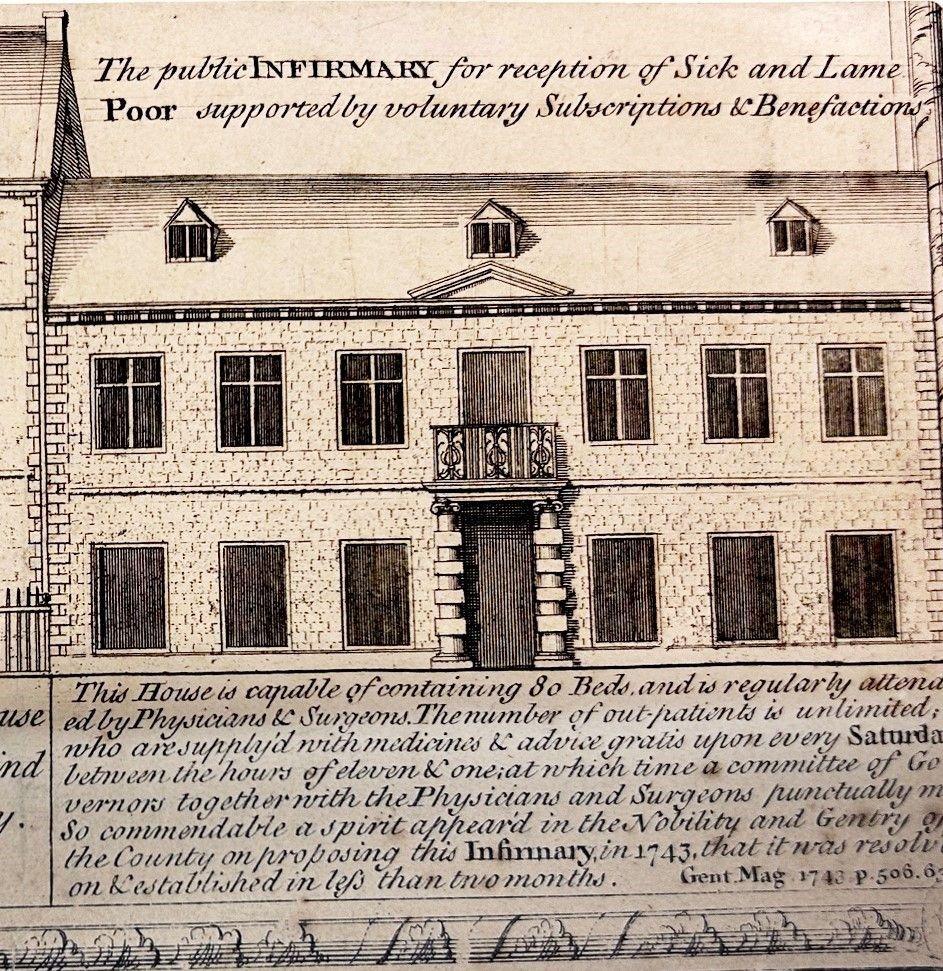 The public INFIRMARY for reception of Sick and Lame
Poor supported by voluntary Subscriptions & Benefactions,
This House is capable of containing 80 Beds, and is regularly attend
ed by Physicians & Surgeons. The number of out-patients is unlimited;
who are supply'd with medicines & advice gratis upon every Saturda
between the hours of eleven & one; at which time a committee of Go
vernors together with the Physicians and Surgeons punctually m
So commendable a spirit appear'd in the Nobility and Gentry of
the County on proposing this Infirmary, in 1743, that it was resolv
on & established in less than two months.
Gent. Mag. 1743 p. 506. 63
use
ind
y.